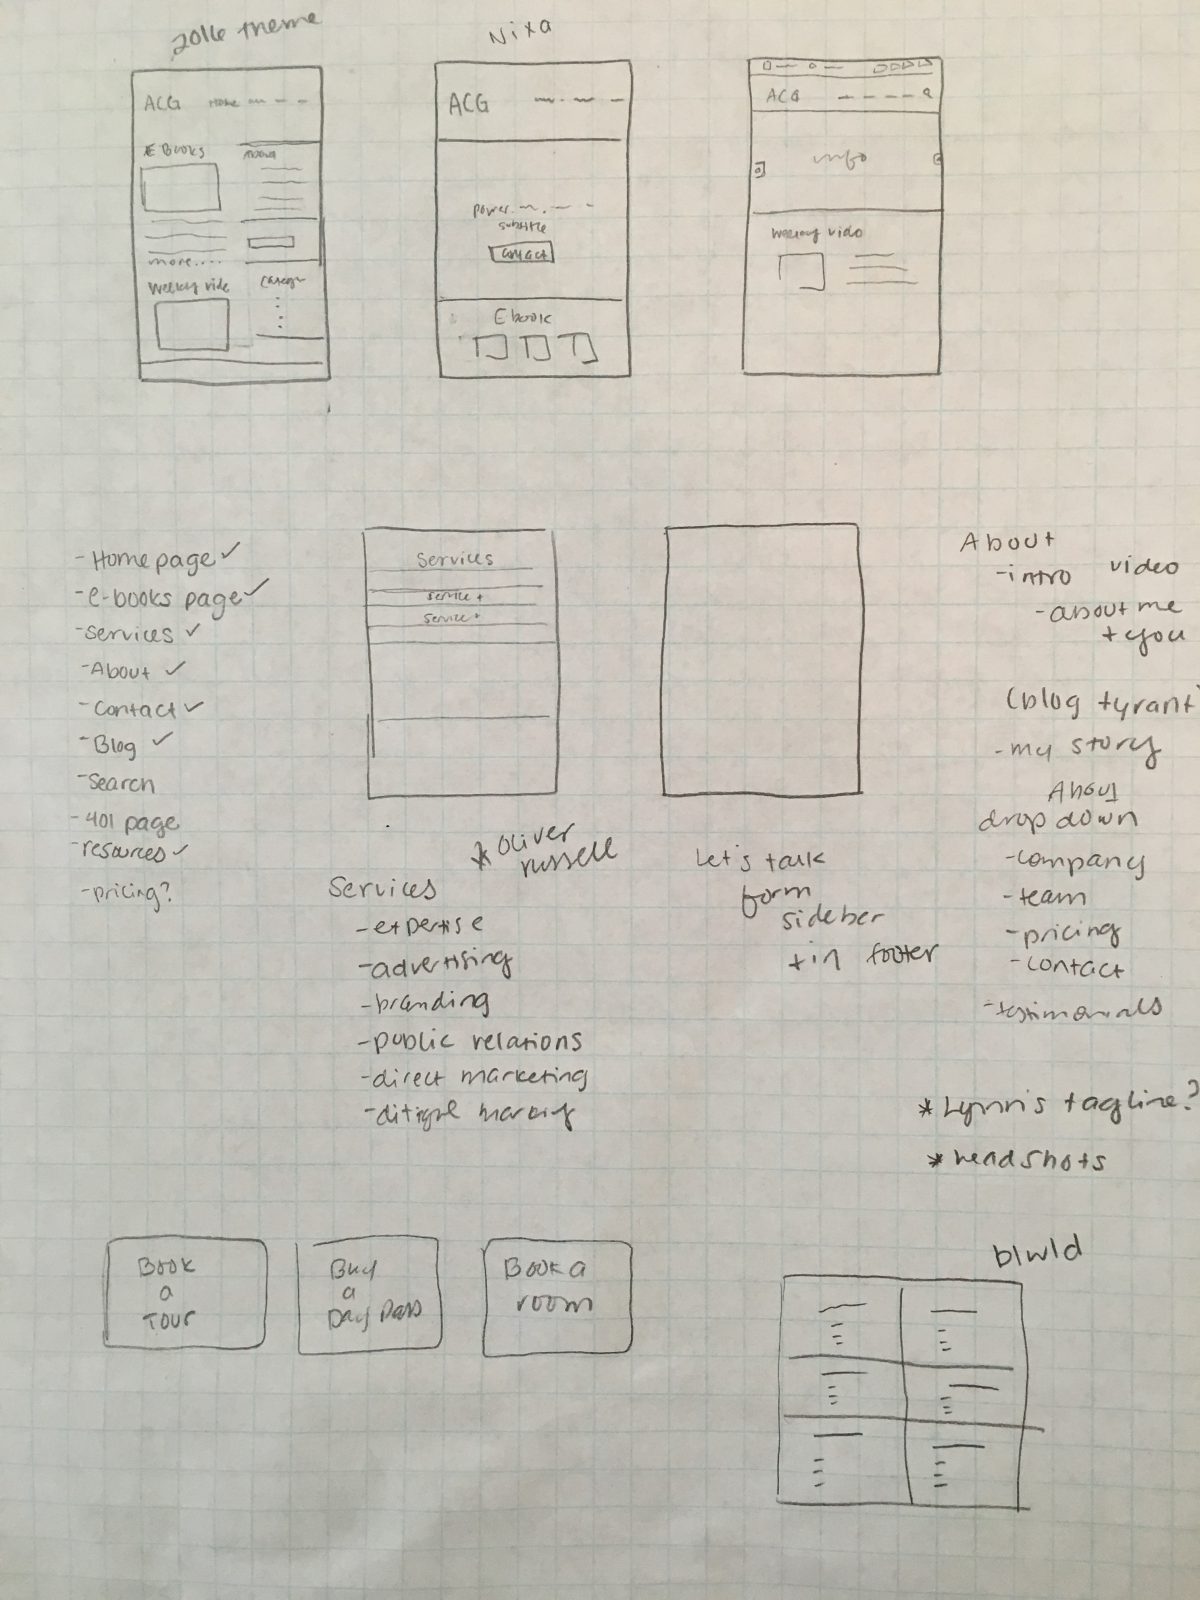 2016 theme
ACG Home
E Books
About
more....
Weekly vide
Nixa
ACG
power
subtitle
contact
Ebook
ACG
info
Weekly vido
- Homepage ✓
- e-books page ✓
- services ✓
- About ✓
- Contact ✓
- Blog ✓
- Search
- 401 page
- resources ✓
- pricing?
Services
service +
service +
* Oliver
russell
Services
- expertise
- advertising
- branding
- public relations
- direct marketing
Let's talk
form
sideber
+ in footer
About
- intro video
- about me
+ you
(blog tyrant)
- my story
About
drop down
- company
- team
- pricing
- contact
- testimonials
* Lynn's tagline?
* headshots
Book
a
Tour
Buy
a
Day Pass
Book a
room
blwld